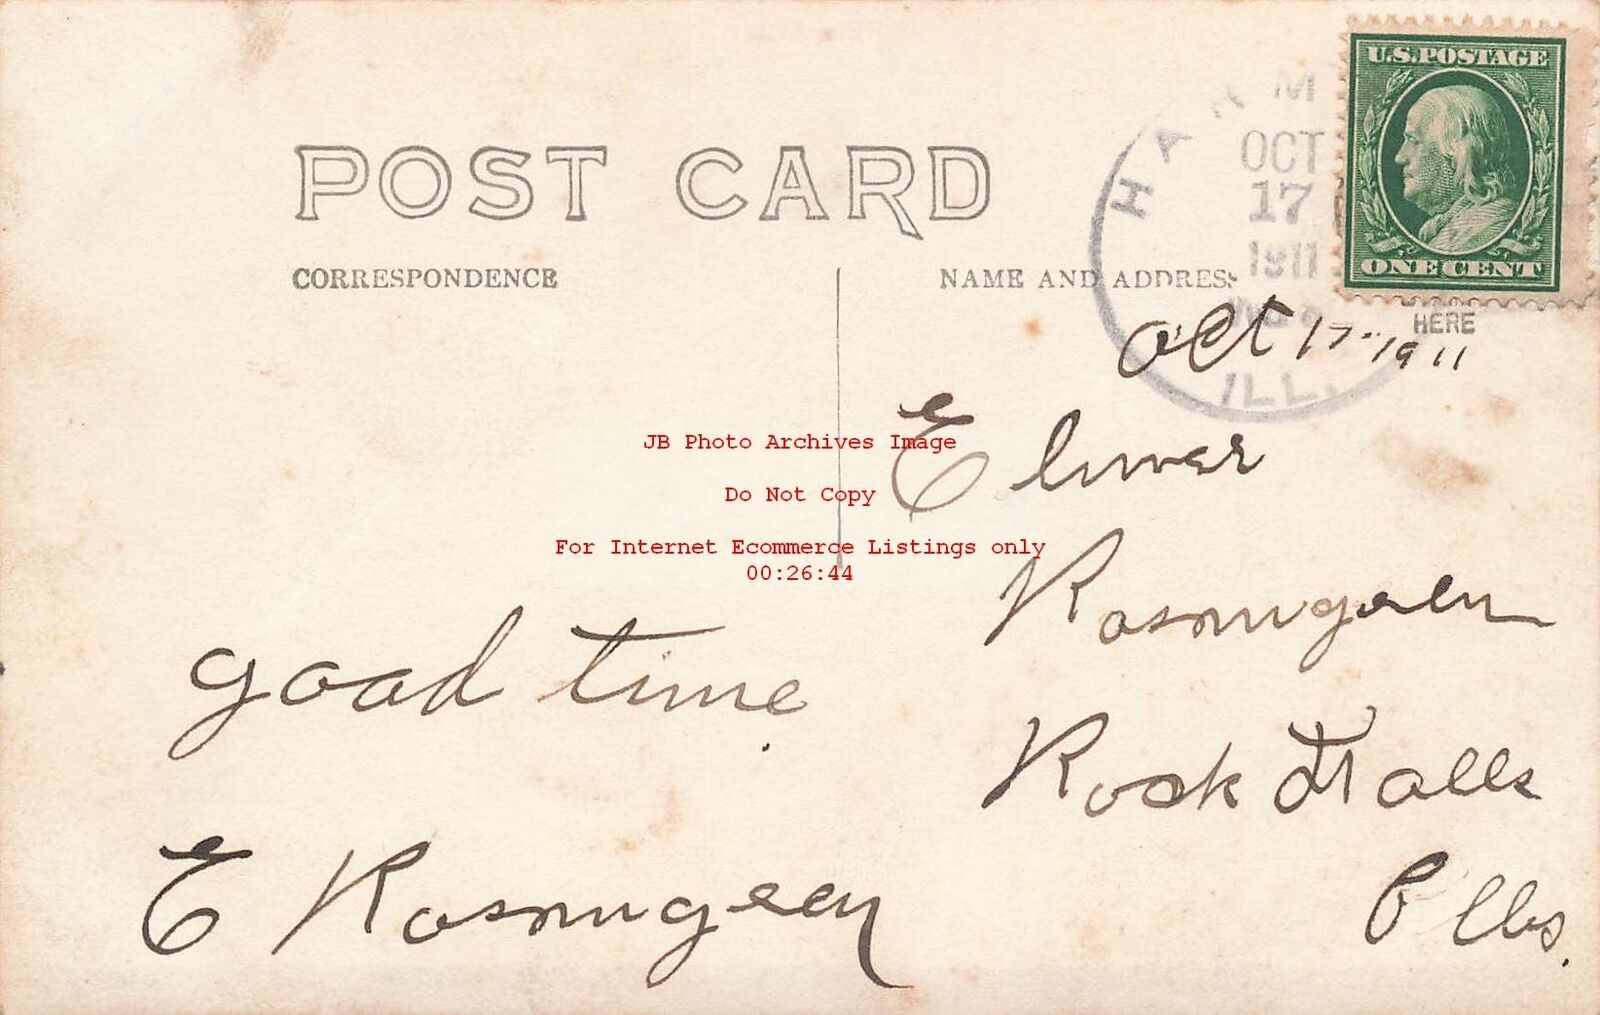 U.S. POSTAGE
ONE CENT
POST CARD
CORRESPONDENCE
NAME AND ADDRESS
HERE
OCT
17
1911
ILL.
Oct 17-1911
Elmer
Rosmgaen
Rock Falls
Ills.
good time
E Rosmgeen
JB Photo Archives Image
Do Not Copy
For Internet Ecommerce Listings only
00:26:44